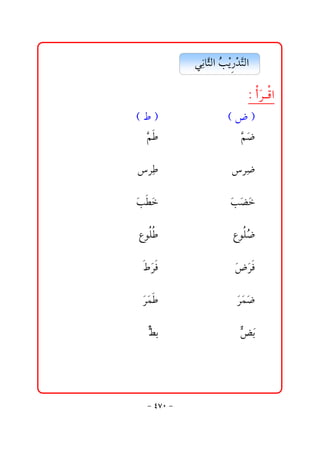 التَّدْرِيْبُ الثَّانِي
اقْـرَأْ :
( ض ) ( ط )
ضَمَّ طَمَّ
ضِرس طِرس
خَضَبَ خَطَبَ
ضُلُوع طُلُوع
فَرَضَ فَرَطَ
ضَمَرَ طَمَرَ
بَضٌّ بطٌّ
- ٤٧٠ -